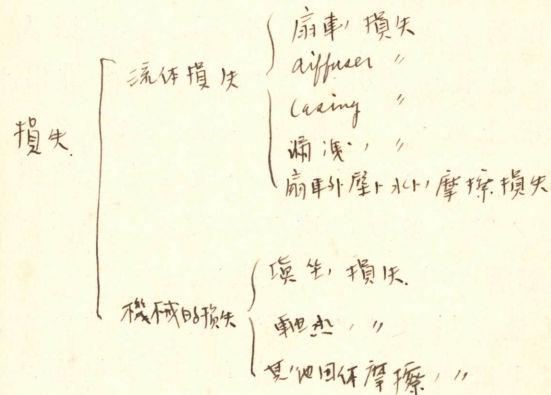 損失
流体損失
扇車ノ損失
diffuser 〃
Casing 〃
漏洩ノ 〃
扇車外壁ト水トノ摩擦損失
機械的損失
損失
〃
其ノ他固体摩擦ノ 〃